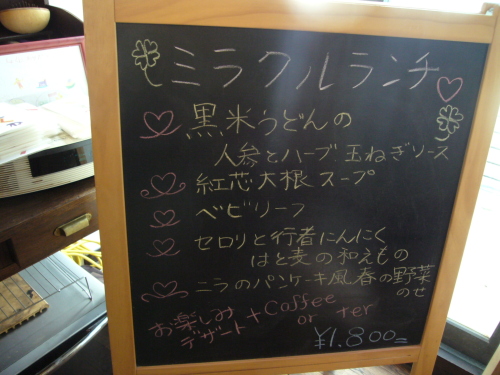 ミラクルランチ
黒米うどんの
人参とハーブ玉ねぎソース
紅芯大根スープ
ベビリーフ
セロリと行者にんにく
はと麦の和えもの
ニラのパンケーキ風春の野菜
のせ
お楽しみ
デザート + Coffee
or ter
¥1.800=